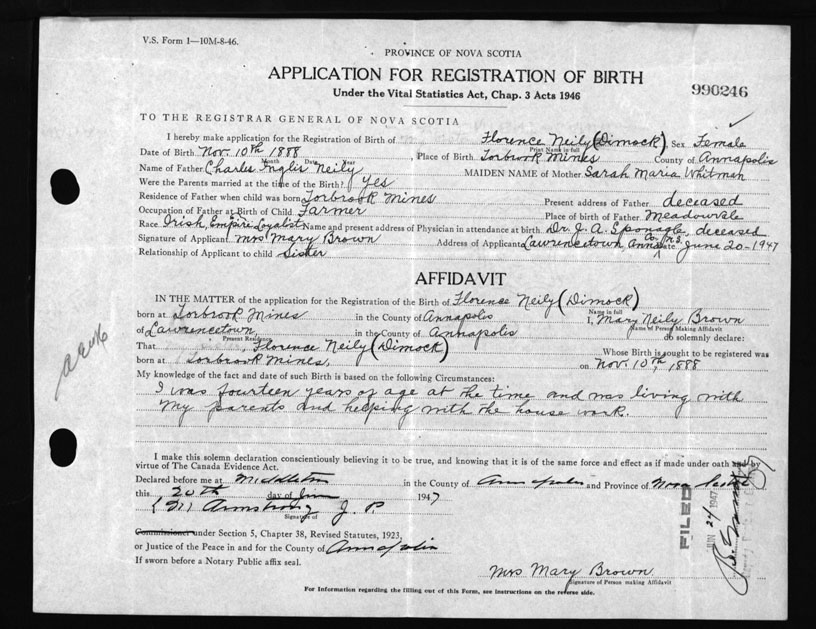 V.S. Form 1—10M-8-46.
PROVINCE OF NOVA SCOTIA
APPLICATION FOR REGISTRATION OF BIRTH
Under the Vital Statistics Act, Chap. 3 Acts 1946
990246
TO THE REGISTRAR GENERAL OF NOVA SCOTIA
I hereby make application for the Registration of Birth of Florence Neily (Dimock) Sex Female
Print Name in full
Date of Birth Nov. 10th 1888 Place of Birth Torbrook Mines County of Annapolis
Month Date Year
Name of Father Charles Inglis Neily MAIDEN NAME of Mother Sarah Maria Whitman
Were the Parents married at the time of the Birth? Yes
Residence of Father when child was born Torbrook Mines Present address of Father deceased
Occupation of Father at Birth of Child Farmer Place of birth of Father Meadowvale
Race Irish, Empire Loyalist Name and present address of Physician in attendance at birth Dr. J. A. Sponagle, deceased
Signature of Applicant Mrs Mary Brown Address of Applicant Lawrencetown, Anna Co. N.S. Date June 20-1947
Relationship of Applicant to child Sister
AFFIDAVIT
IN THE MATTER of the application for the Registration of the Birth of Florence Neily (Dimock)
Name in full
born at Torbrook Mines in the County of Annapolis I, Mary Neily Brown
Name of Person Making Affidavit
of Lawrencetown, in the County of Annapolis do solemnly declare:
Present Residence
That Florence Neily (Dimock) Whose Birth is sought to be registered was
born at Torbrook Mines, on Nov. 10th, 1888
My knowledge of the fact and date of such Birth is based on the following Circumstances:
I was fourteen years of age at the time and was living with
my parents and helping with the house work.
I make this solemn declaration conscientiously believing it to be true, and knowing that it is of the same force and effect as if made under oath and by
virtue of The Canada Evidence Act.
Declared before me at Middleton in the County of Annapolis and Province of Nova Scotia
this 20th day of June 1947
Armstrong J. P
Signature of
Commissioner under Section 5, Chapter 38, Revised Statutes, 1923,
or Justice of the Peace in and for the County of Annapolis
If sworn before a Notary Public affix seal.
FILED
JUN 24 1947
Mrs Mary Brown
Signature of Person making Affidavit
For Information regarding the filling out of this Form, see instructions on the reverse side.